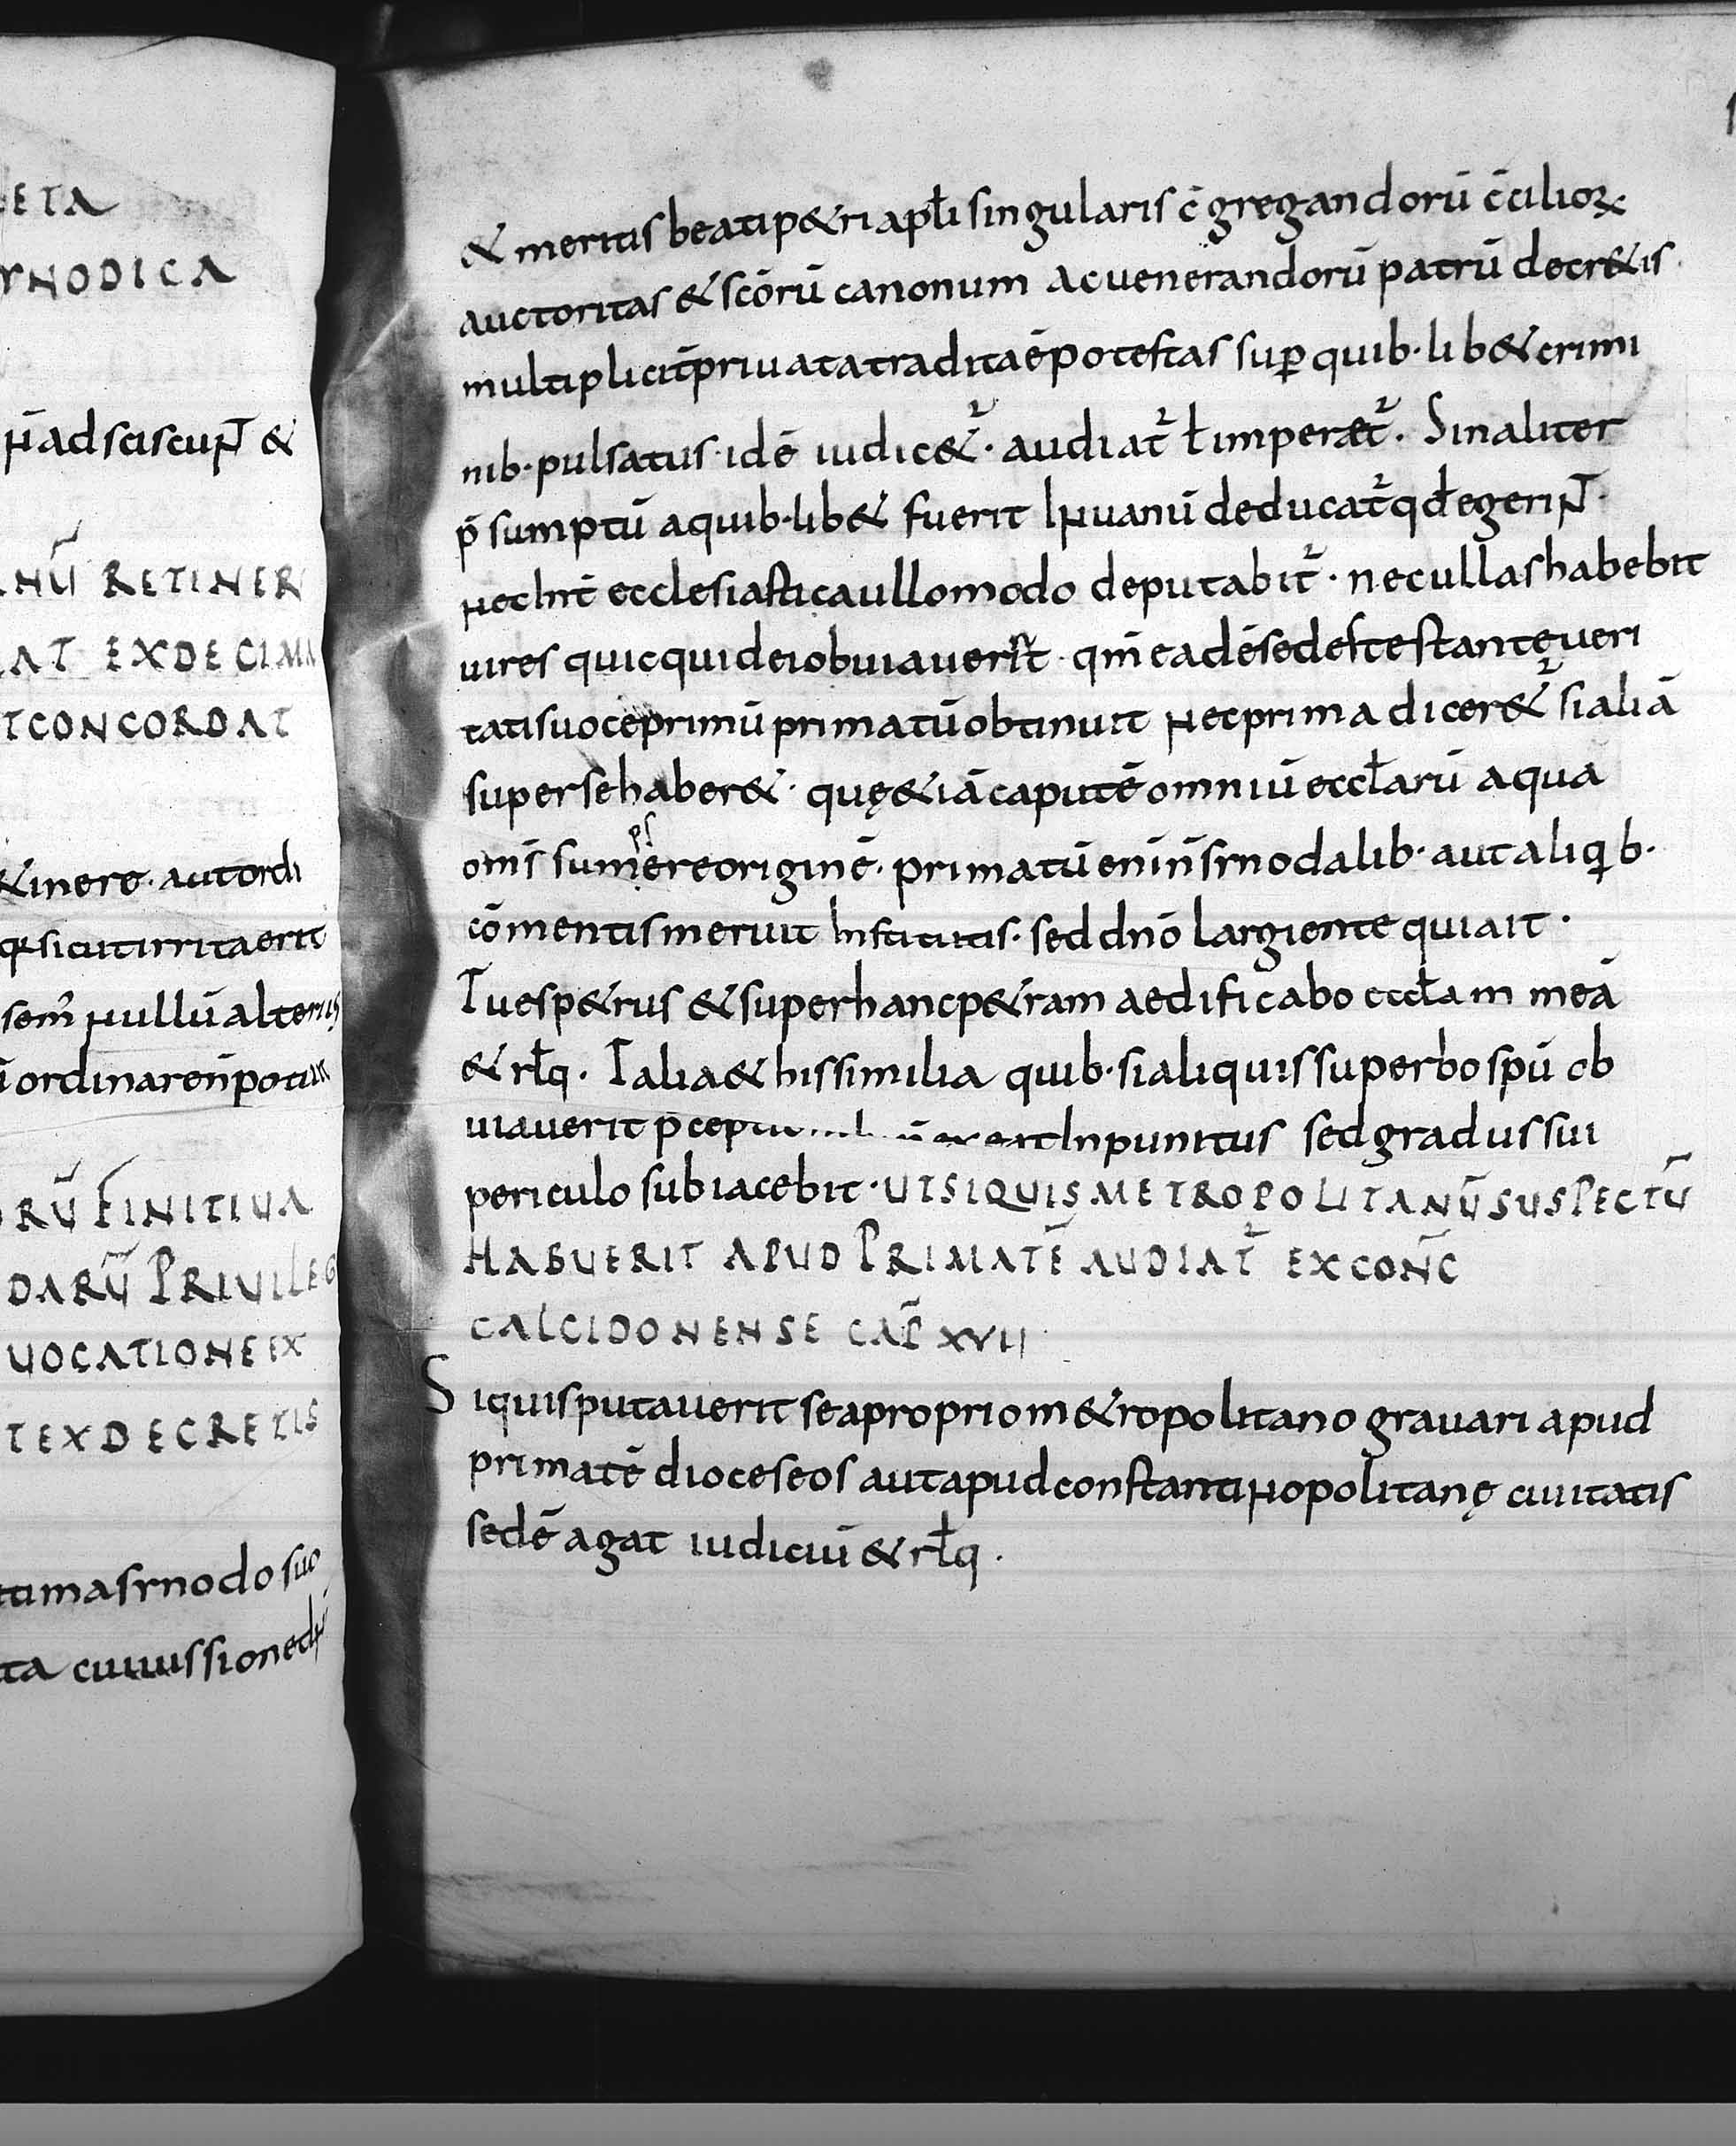 ETA
YNODICA
n̄ adsciscunt̄ &
NŪ RETINER
AT EXDECIMA
TCONCORDAT
&inere · aut ordi
sicut irrita erit
nullū alterius
ordinare n̄ potuer
ORŪ FINITIUA
DARŪ PRIUILEG
UOCATIONE EX
T EX DECRETIS
tima synodo suo
ta
& meritis beati p&ri apłi singularis c̄gregandorū c̄cilioꝝ
auctoritas & scōrū canonum ac uenerandorū patrū decr&is ·
multiplicit̄ priuata tradita ē potestas sup̄ quib· lib& crimi
nib· pulsatus · idē iudic&ur · audiat᷑ ł imper&᷑ · Sin aliter
p̄sumptū a quib·lib& fuerit In uanū deducat᷑ qđ egerint̄ ·
nec Int̄ ecclesiastica ullomodo deputabit᷑ · nec ullas habebit
uires quicquid ei obuiauerit · qm̄ eadē sedes testante ueri
tatis uoce primū primatū obtinuit nec prima dicer&᷑ si aliā
super se haber& · quę & iā caput ē omniū eccłarū a qua
om̄s sumpsere originē · primatū enī n̄ synodalib· aut aliqib·
cōmentis meruit Institutis · sed dn̄o largiente qui ait ·
Tu es p&rus & super hanc p&ram aedificabo eccłam meā
& rłq · Talia & his similia quib· si aliquis superbo spū ob
uiauerit erit Inpunitus sed gradus sui
periculo subiacebit · UT SI QUIS METROPOLITANŪ SUSPECTŪ
HABUERIT APUD PRIMATĒ AUDIAT᷑ EX CONC̄
CALCIDONENSE CAP̄ XVII
Si quis putauerit se a proprio m&ropolitano grauari apud
primatē dioceseos aut apud constantinopolitanę ciuitatis
sedē agat iudiciū & rłq ·